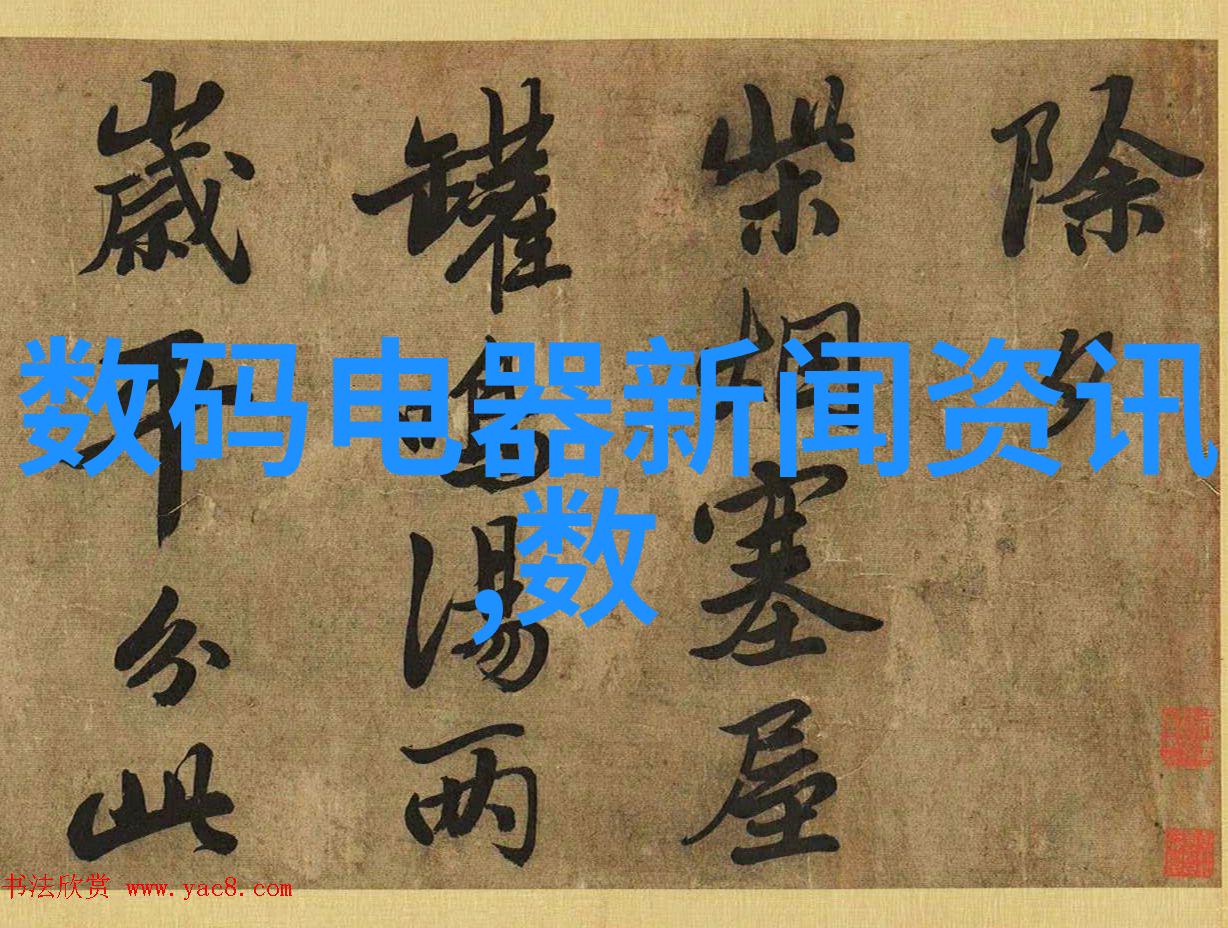 除夕
柴烟塞屋
罐鳴湯两
歲平分此
数码电器新闻资讯
,数
书法欣赏 www.yac8.com